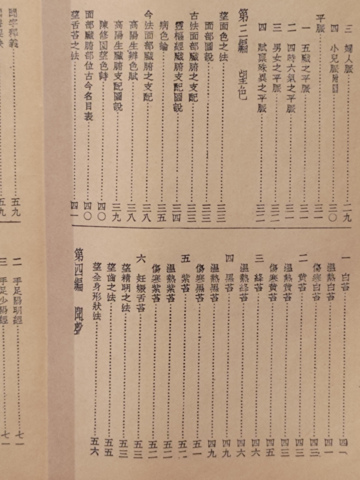 三 婦人脈……二九
四 小兒脈
平脈
一 五臟之平脈……三一
二 四時六氣之平脈
三 男女之平脈……三二
四 賦稟殊異之平脈……三二
第三編 望色
望面色之法……三三
面部圖說
古法面部臟腑之支配……三三
靈樞經臟腑支配圖說……三四
病色論……三五
今法面部臟腑之支配……三八
高陽生辨色賦……三八
高陽生臟腑支配圖說……三九
陳修園望色詩……四〇
面部臟腑部位古今名目表……四〇
望舌苔之法……四一
一 白苔
溫熱白苔
傷寒白苔
二 黃苔
溫熱黃苔
傷寒黃苔……四五
三 絳苔……四六
溫熱絳苔……四六
四 黑苔……四九
溫熱黑苔……四九
傷寒黑苔……五一
五 紫苔……五一
溫熱紫苔……五二
傷寒紫苔……五二
六 妊娠舌苔……五三
望精明之法……五三
望齒之法……五五
望全身形狀法……五六
第四編 聞聲
五九
五九
二 手足陽明經……七一
三 手足少陽經……七一